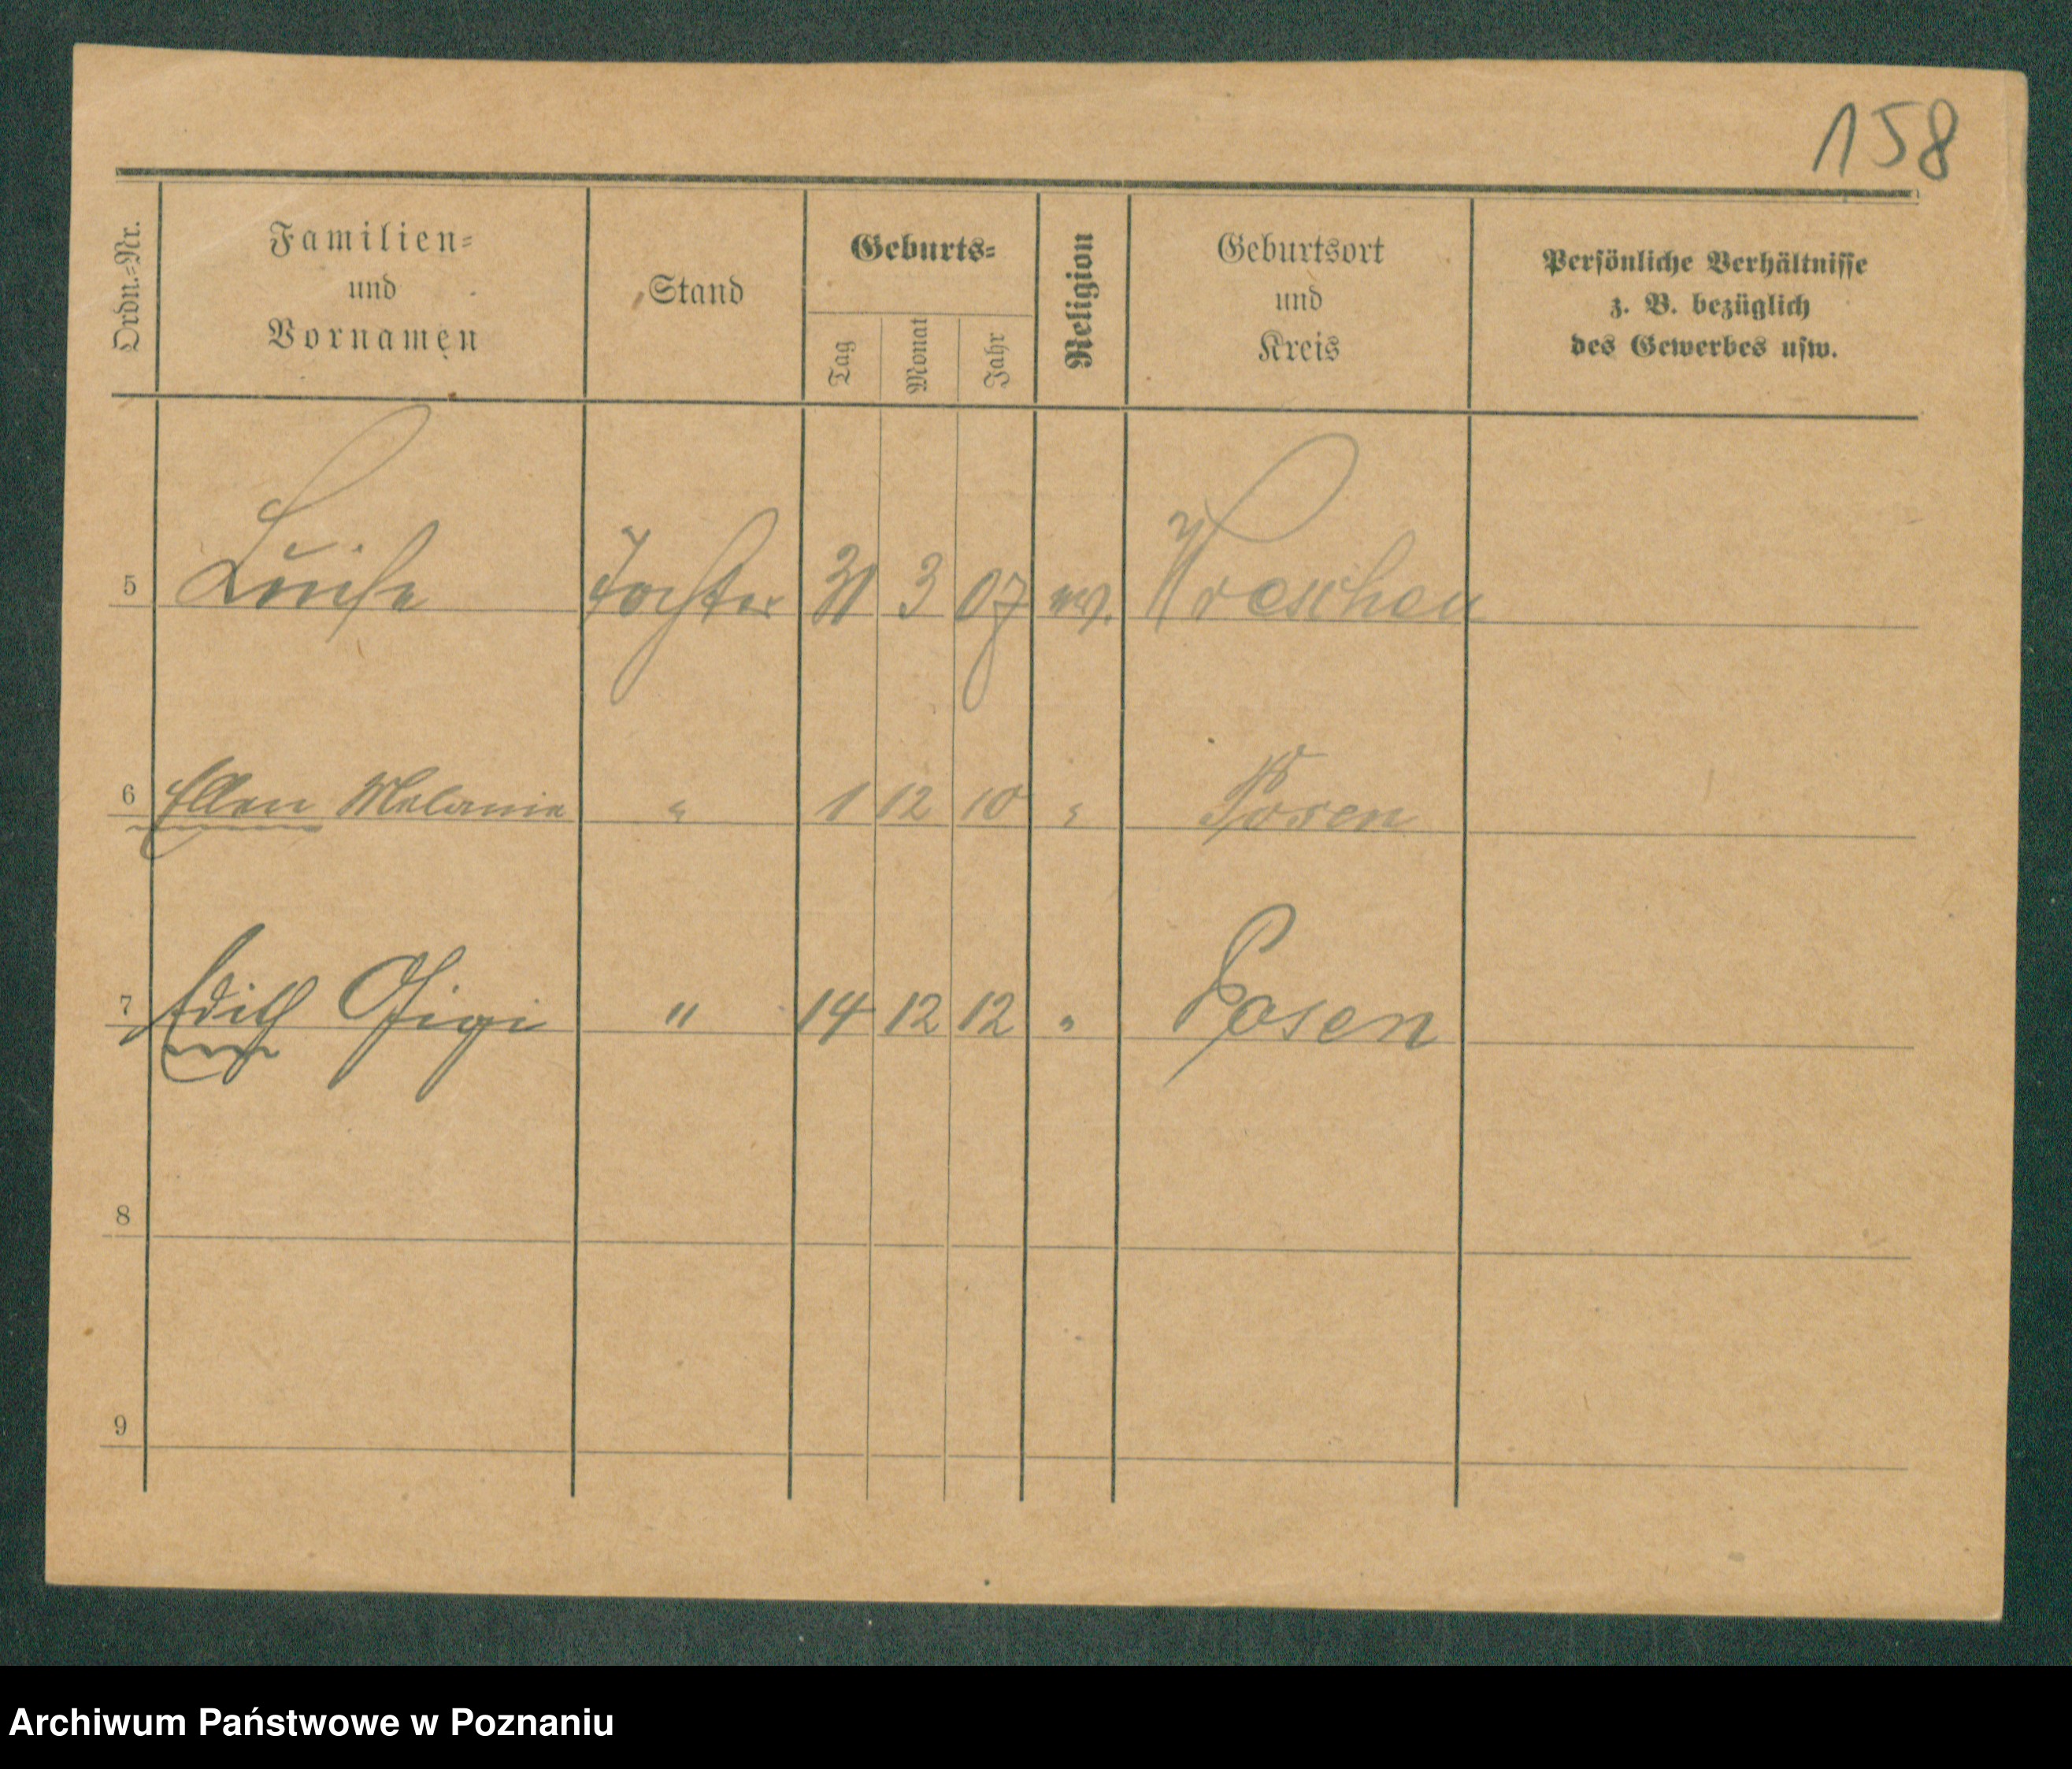 158
Ordn.-Nr.
Familien-
und
Vornamen
Stand
Geburts-
Tag
Monat
Jahr
Religion
Geburtsort
und
Kreis
Persönliche Verhältnisse
z. B. bezüglich
des Gewerbes usw.
5 Luise Tochter 31 3 07 ev. Wreschen
6 Ellen Melanie " 1 12 10 " Posen
7 Edith " 14 12 12 " Posen
8
9
Archiwum Państwowe w Poznaniu